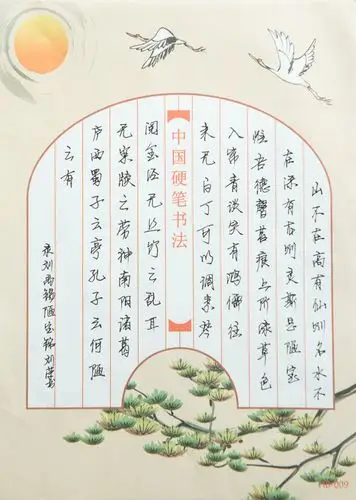 山不在高有仙则名水不
在深有龙则灵斯是陋室
惟吾德馨苔痕上阶绿草色
入帘青谈笑有鸿儒往
来无白丁可以调素琴
中国硬笔书法
阅金经无丝竹之乱耳
无案牍之劳神南阳诸葛
庐西蜀子云亭孔子云何陋
之有
录刘禹锡陋室铭刘